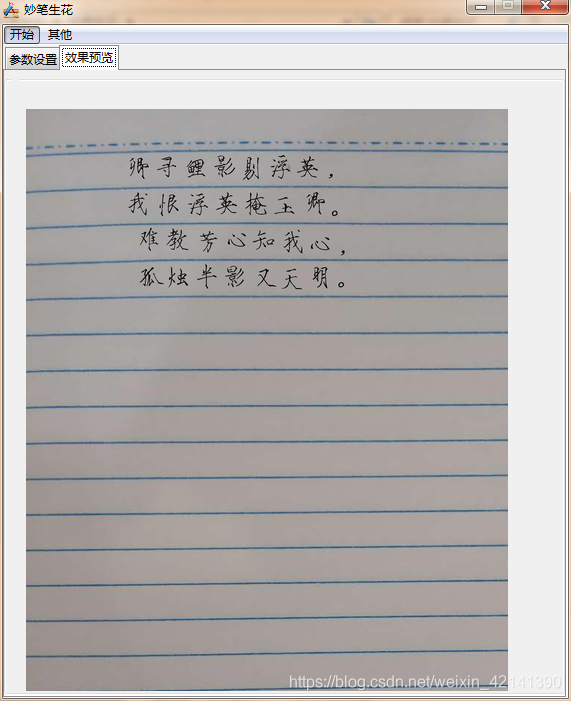 妙笔生花
开始 其他
参数设置 效果预览
卿寻鲤影剔浮英，
我恨浮英掩玉卿。
难教芳心知我心，
孤烛半影又天明。
https://blog.csdn.net/weixin_42141390